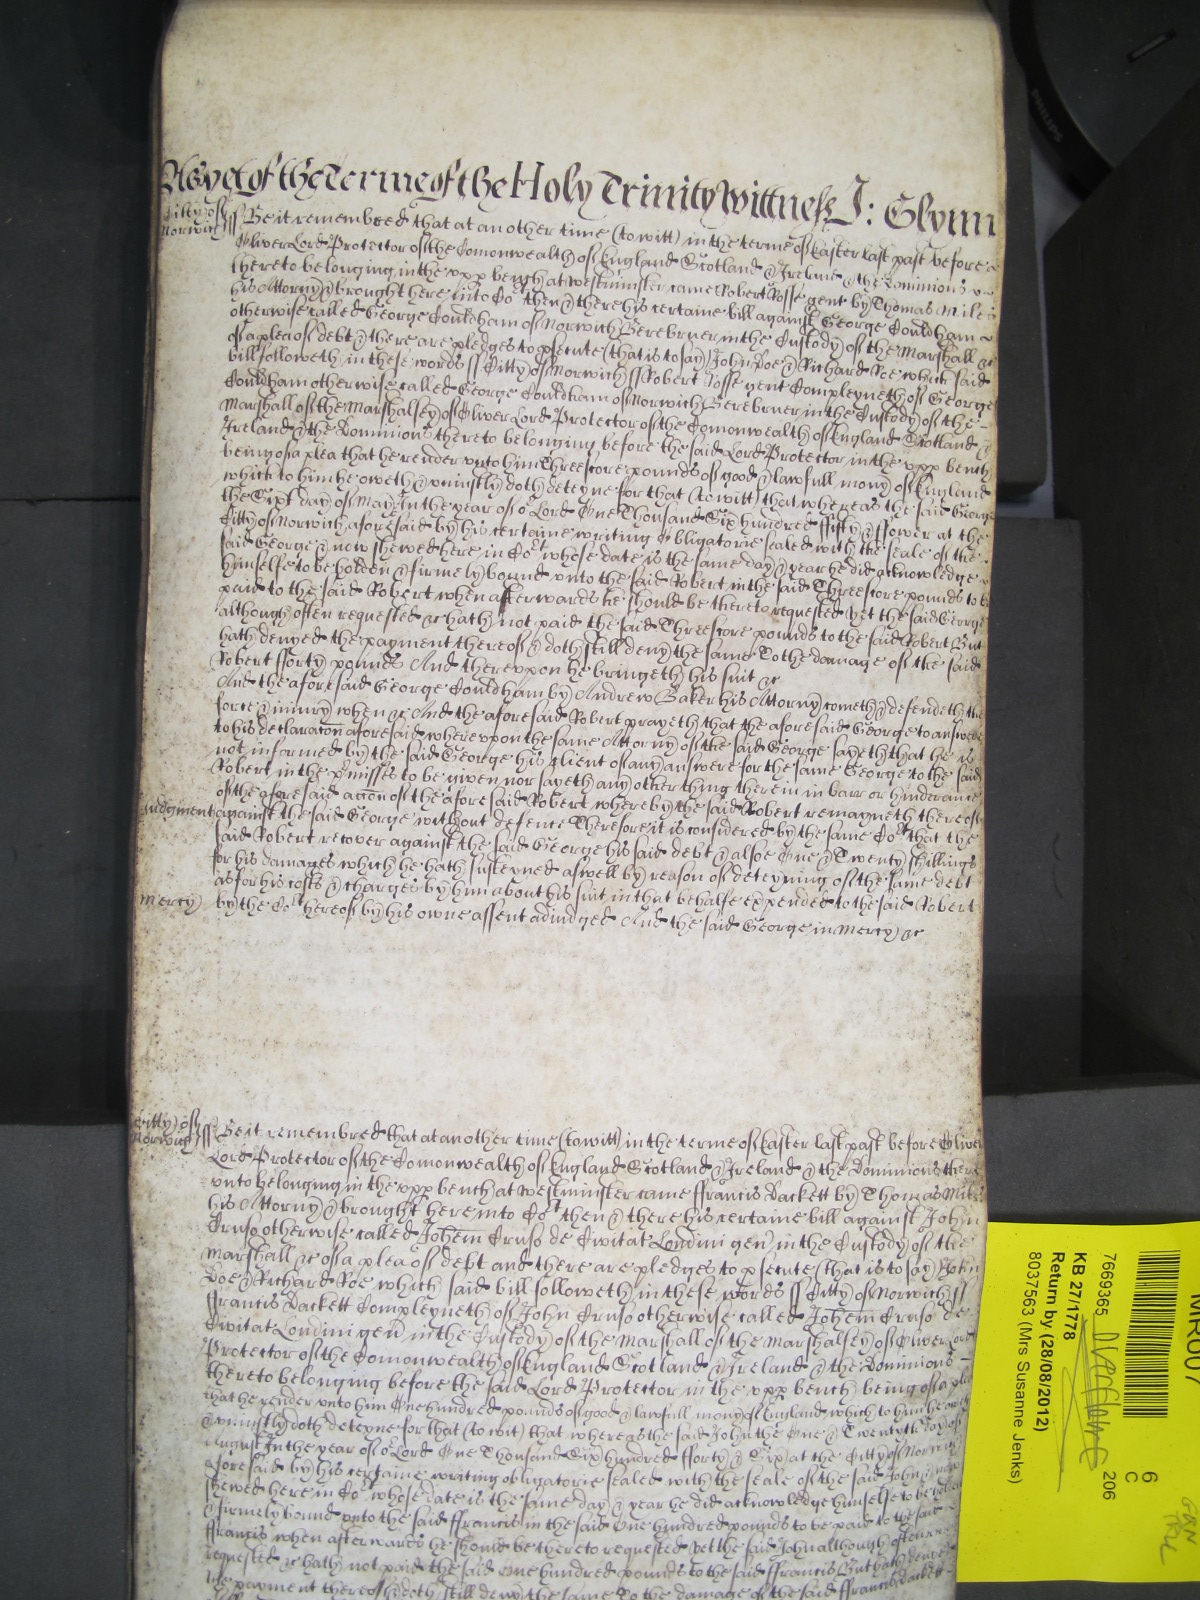 As yet of the Terme of the Holy Trinity Wittness J: Glynn
Citty of Norwich ss Be it remembred that at another time (to witt) in the terme of Easter last past before
Oliver Lord Protector of the Comonwealth of England Scotland & Ireland & the Dominions
thereto belonging in the upp bench at Westminster came Robert Rosse gent by Thomas Miles
his Attorny & brought here into Cort then & there his certaine bill against George Couldham
otherwise called George Couldham of Norwich Berebruer in the Custody of the Marshall &c
of a plea of debt & there are pledges to psecute (that is to say) John Doe & Richard Roe which said
bill followeth in these words ss Citty of Norwich ss Robert Rosse gent Compleyneth of George
Couldham otherwise called George Couldham of Norwich Berebruer in the Custody of the
Marshall of the Marshalsey of Oliver Lord Protector of the Comonwealth of England Scotland &
Ireland & the Dominions thereto belonging before the said Lord Protector in the upp bench
being of a plea that he render unto him Threescore pounds of good & lawfull mony of England
which to him he oweth & uniustly doth deteyne for that (to witt) that whereas the said George
the Sixt day of May In the year of or Lord One Thousand Six hundred ffifty & ffower at the
Citty of Norwich aforesaid by his certaine writing Obligatorie sealed with the seale of the
said George & now shewed here in Cort whose date is the same day & year he did acknowledge
himselfe to be holden & firmely bound unto the said Robert in the said Threescore pounds to be
paid to the said Robert when afterwards he should be thereto requested yet the said George
although often requested &c hath not paid the said Threescore pounds to the said Robert But
hath denyed the payment thereof & doth still deny the same To the damage of the said
Robert fforty pounds And thereupon he bringeth his suit &c
And the aforesaid George Couldham by Andrew Baker his Attorny cometh & defendeth the
force & iniury when &c And the aforesaid Robert prayeth that the aforesaid George to answere
to his declaracon aforesaid whereupon the same Attorny of the said George sayeth that he is
not informed by the said George his client of any answere for the same George to the said
Robert in the pmisses to be given nor sayeth any other thing therein in barr or hinderance
of the aforesaid accon of the aforesaid Robert whereby the said Robert remayneth thereof
Judgment against the said George without defence Therefore it is considered by the same Cort that the
said Robert recover against the said George his said debt & alsoe One & Twenty shillings
for his damages which he hath susteyned aswell by reason of deteyning of the same debt
as for his costs & charges by him about his suit in that behalfe expended to the said Robert
Mercy by the Cort hereof by his owne assent adiudged And the said George in Mercy &c
Citty of Norwich ss Be it remembred that at another time (to witt) in the terme of Easter last past before Oliver
Lord Protector of the Comonwealth of England Scotland & Ireland & the Dominions there
unto belonging in the upp bench at Westminster came ffrancis Dackett by Thomas Miles
his Attorny & brought here into Cort then & there his certaine bill against John
Cruso otherwise called Johem Cruso de Civitat Londini gen in the Custody of the
Marshall &c of a plea of debt and there are pledges to psecute (that is to say) John
Doe & Richard Roe which said bill followeth in these words ss Citty of Norwich ss
ffrancis Dackett Compleyneth of John Cruso otherwise called Johem Cruso de
Civitat Londini gen in the Custody of the Marshall of the Marshalsey of Oliver Lord
Protector of the Comonwealth of England Scotland & Ireland & the Dominions
thereto belonging before the said Lord Protector in the upp bench being of a plea
that he render unto him One hundred pounds of good & lawfull mony of England which to him he oweth
& uniustly doth deteyne for that (to wit) that whereas the said John the One & Twentyth day of
August In the year of or Lord One Thousand Six hundred fforty & Six at the Citty of Norwich
aforesaid by his certaine writing obligatorie sealed with the seale of the said John & now
shewed here in Cort whose date is the same day & year he did acknowledge himselfe to be holden
& firmely bound unto the said ffrancis in the said One hundred pounds to be paid to the said
ffrancis when afterwards he should be thereto requested yet the said John although often
requested &c hath not paid the said One hundred pounds to the said ffrancis But hath denyed
the payment thereof & doth still deny the same To the damage of the said ffrancis Dackett
PHILIPS
MR007
6
C
7669365
206
KB 27/1778
Return by (28/08/2012)
8037563 (Mrs Susanne Jenks)